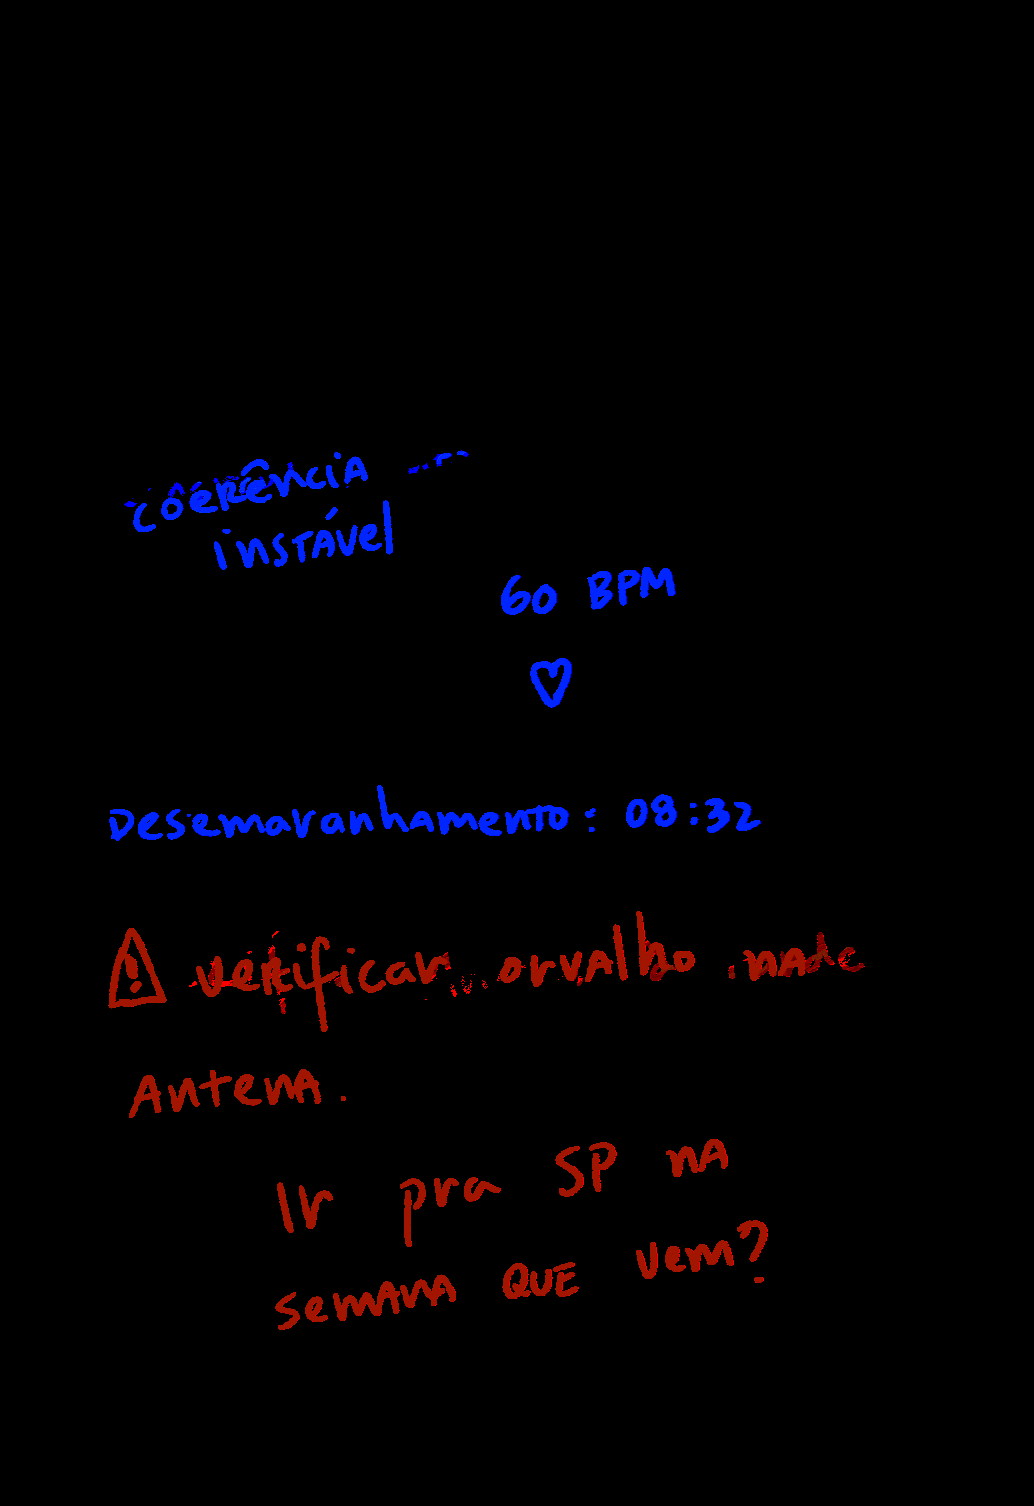 coerência ...
instável
60 BPM
Desemaranhamento: 08:32
verificar orvalho na
Antena.
Ir pra SP na
semana QUE vem?